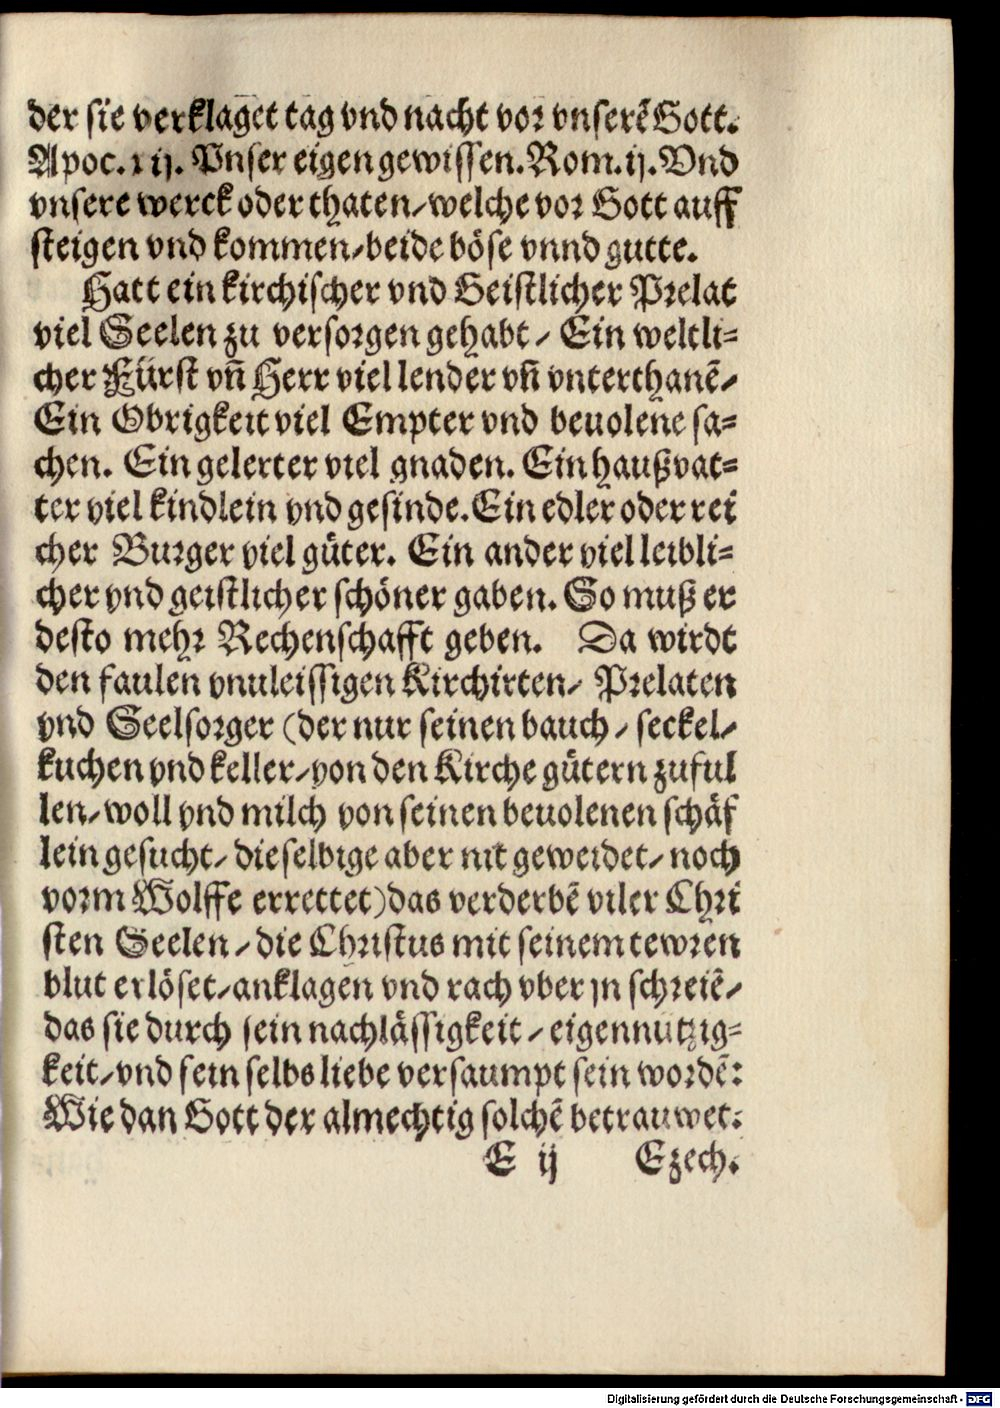 der sie verklaget tag vnd nacht vor vnserẽ Gott.
Apoc. xij. Vnser eigen gewissen. Rom. ij. Vnd
vnsere werck oder thaten / welche vor Gott auff
steigen vnd kommen / beide böse vnnd gutte.
Hatt ein kirchischer vnd Geistlicher Prelat
viel Seelen zu versorgen gehabt / Ein weltli=
cher Fürst vñ Herr viel lender vñ vnterthanẽ /
Ein Obrigkeit viel Empter vnd beuolene sa=
chen. Ein gelerter viel gnaden. Ein haußvat=
ter viel kindlein vnd gesinde. Ein edler oder rei
cher Burger viel güter. Ein ander viel leibli=
cher vnd geistlicher schöner gaben. So muß er
desto mehr Rechenschafft geben. Da wirdt
den faulen vnuleissigen Kirchirten / Prelaten
vnd Seelsorger (der nur seinen bauch / seckel /
kuchen vnd keller / von den Kirche gütern zuful
len / woll vnd milch von seinen beuolenen schäf
lein gesucht / dieselbige aber nit geweidet / noch
vorm Wolffe errettet) das verderbẽ viler Chri
sten Seelen / die Christus mit seinem tewren
blut erlöset / anklagen vnd rach vber jn schreiẽ /
das sie durch sein nachlässigkeit / eigennutzig=
keit / vnd sein selbs liebe versaumpt sein wordẽ:
Wie dan Gott der almechtig solchẽ betrauwet.
E ij Ezech.
Digitalisierung gefördert durch die Deutsche Forschungsgemeinschaft - DFG